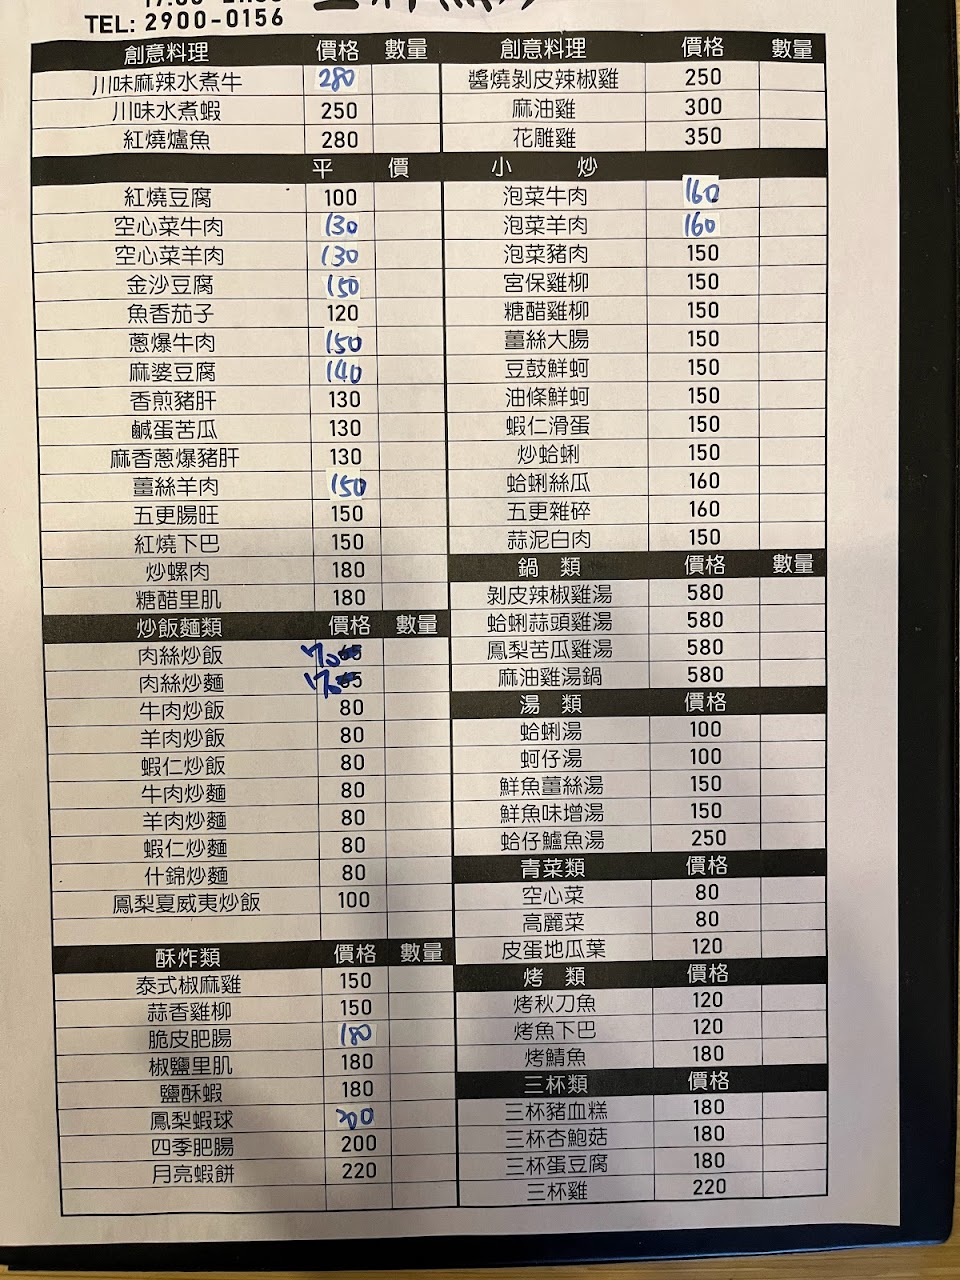 TEL: 2900-0156
創意料理 價格 數量
川味麻辣水煮牛 280
川味水煮蝦 250
紅燒爐魚 280
創意料理 價格 數量
醬燒剝皮辣椒雞 250
麻油雞 300
花雕雞 350
平 價 小 炒
紅燒豆腐 100
空心菜牛肉 130
空心菜羊肉 130
金沙豆腐 150
魚香茄子 120
蔥爆牛肉 150
麻婆豆腐 140
香煎豬肝 130
鹹蛋苦瓜 130
麻香蔥爆豬肝 130
薑絲羊肉 150
五更腸旺 150
紅燒下巴 150
炒螺肉 180
糖醋里肌 180
炒飯麵類 價格 數量
肉絲炒飯 70
肉絲炒麵 70
牛肉炒飯 80
羊肉炒飯 80
蝦仁炒飯 80
牛肉炒麵 80
羊肉炒麵 80
蝦仁炒麵 80
什錦炒麵 80
鳳梨夏威夷炒飯 100
酥炸類 價格 數量
泰式椒麻雞 150
蒜香雞柳 150
脆皮肥腸 180
椒鹽里肌 180
鹽酥蝦 180
鳳梨蝦球 200
四季肥腸 200
月亮蝦餅 220
泡菜牛肉 160
泡菜羊肉 160
泡菜豬肉 150
宮保雞柳 150
糖醋雞柳 150
薑絲大腸 150
豆鼓鮮蚵 150
油條鮮蚵 150
蝦仁滑蛋 150
炒蛤蜊 150
蛤蜊絲瓜 160
五更雜碎 160
蒜泥白肉 150
鍋 類 價格 數量
剝皮辣椒雞湯 580
蛤蜊蒜頭雞湯 580
鳳梨苦瓜雞湯 580
麻油雞湯鍋 580
湯 類 價格
蛤蜊湯 100
蚵仔湯 100
鮮魚薑絲湯 150
鮮魚味增湯 150
蛤仔鱸魚湯 250
青菜類 價格
空心菜 80
高麗菜 80
皮蛋地瓜葉 120
烤 類 價格
烤秋刀魚 120
烤魚下巴 120
烤鯖魚 180
三杯類 價格
三杯豬血糕 180
三杯杏鮑菇 180
三杯蛋豆腐 180
三杯雞 220